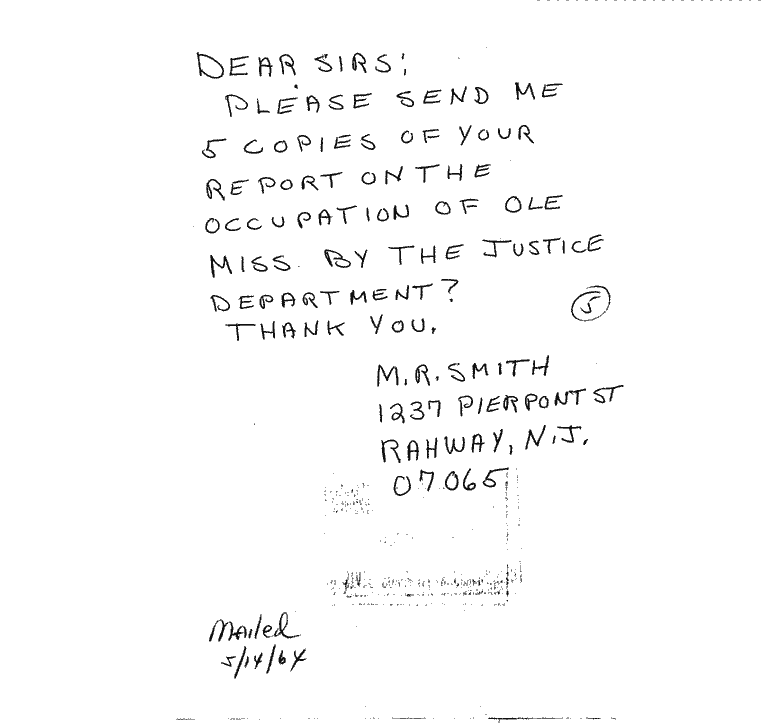 DEAR SIRS;
PLEASE SEND ME
5 COPIES OF YOUR
REPORT ON THE
OCCUPATION OF OLE
MISS. BY THE JUSTICE
DEPARTMENT?
THANK YOU.
5
M.R. SMITH
1237 PIERPONT ST
RAHWAY, N.J.
07065
Mailed
5/14/64